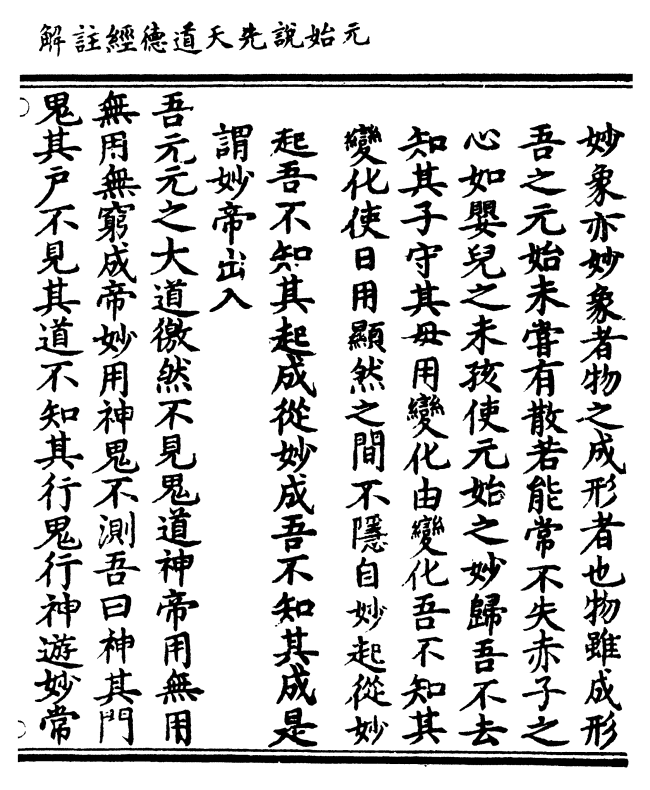 元始說先天道德經註解
妙象亦妙象者物之成形者也物雖成形
吾之元始未嘗有散若能常不失赤子之
心如嬰兒之未孩使元始之妙歸吾不去
知其子守其母用變化由變化吾不知其
變化使日用顯然之間不隱自妙起從妙
起吾不知其起成從妙成吾不知其成是
謂妙帝出入
吾元元之大道微然不見鬼道神帝用無用
無用無窮成帝妙用神鬼不測吾曰神其門
鬼其戶不見其道不知其行鬼行神遊妙常